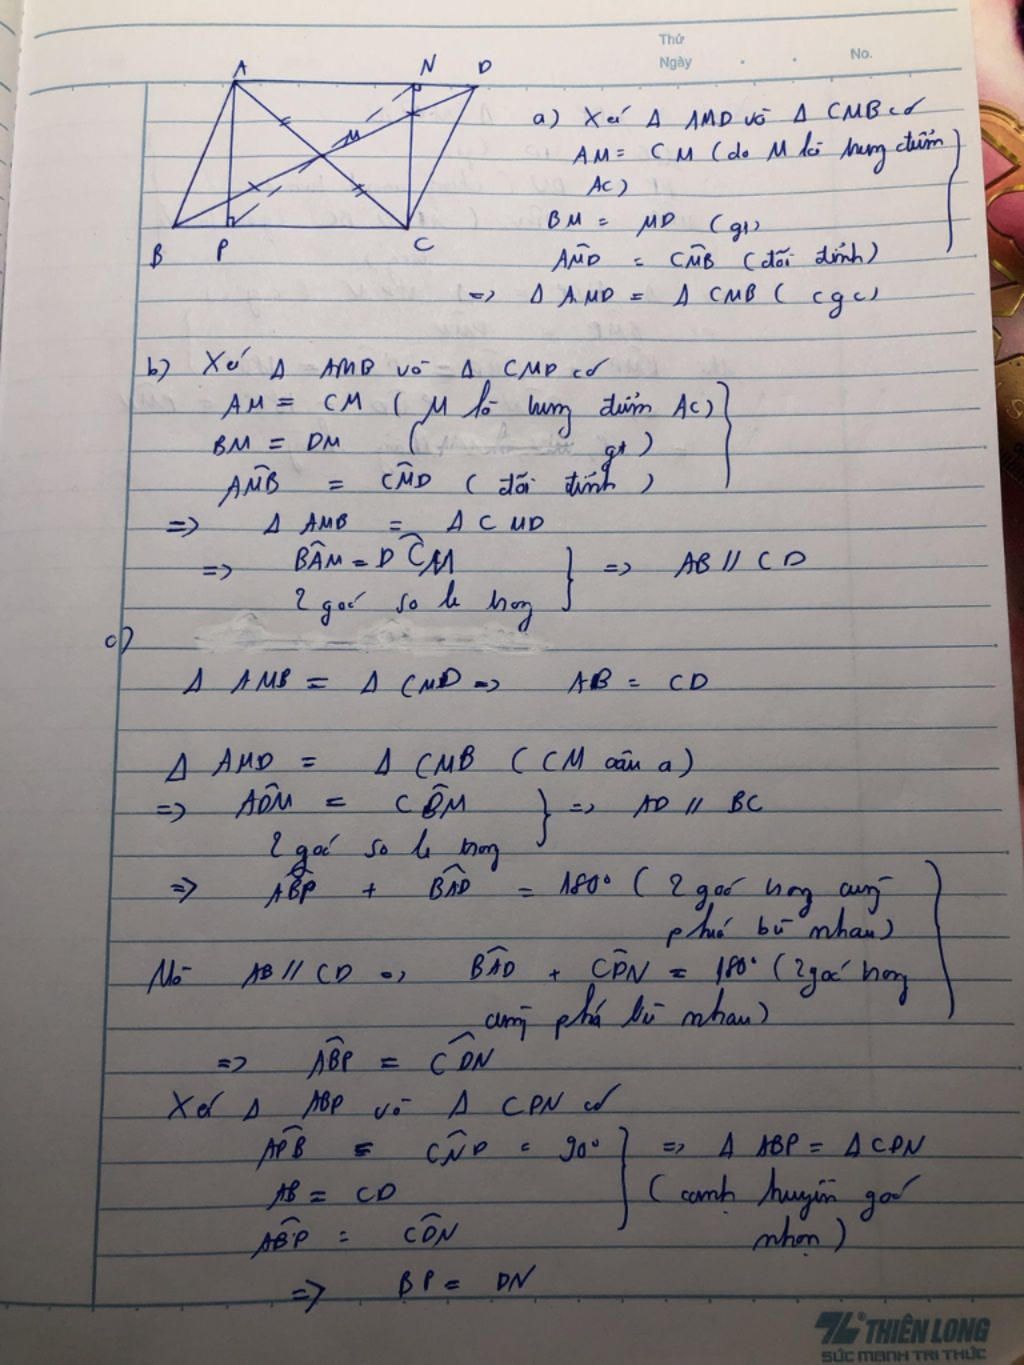 Thứ
Ngày . . No.
A N D
M
B P C
a) Xét Δ AMD và Δ CMB có
AM = CM (do M là trung điểm
AC)
BM = MD (gt)
AM̂D = CM̂B (đối đỉnh)
=> Δ AMD = Δ CMB (cgc)
b) Xét Δ AMB và Δ CMD có
AM = CM (M là trung điểm AC)
BM = DM (gt)
AM̂B = CM̂D (đối đỉnh)
=> Δ AMB = Δ CMD
=> BÂM = DĈM } => AB // CD
2 góc so le trong
c)
Δ AMB = Δ CMD => AB = CD
Δ AMD = Δ CMB (CM câu a)
=> AD̂M = CB̂M } => AD // BC
2 góc so le trong
=> AB̂P + BÂD = 180° (2 góc trong cùng
phía bù nhau)
Mà AB // CD => BÂD + CD̂N = 180° (2 góc trong
cùng phía bù nhau)
=> AB̂P = CD̂N
Xét Δ ABP và Δ CDN có
AP̂B = CN̂D = 90° } => Δ ABP = Δ CDN
AB = CD (cạnh huyền góc
AB̂P = CD̂N nhọn)
=> BP = DN
THIÊN LONG
SỨC MẠNH TRI THỨC